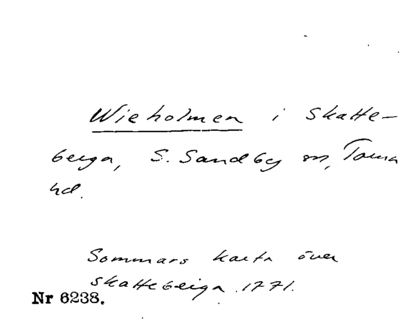 Wieholmen i Skatte-
beiga, S. Sandby sn, Torna
hd.
Sommars karta över
Skattebeiga 1771.
Nr 6238.